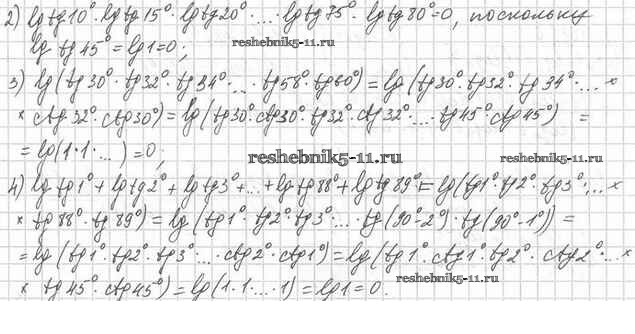 2) lg tg 10° · lg tg 15° · lg tg 20° · ... · lg tg 75° · lg tg 80° = 0, поскольку
lg tg 45° = lg 1 = 0;
reshebnik5-11.ru
3) lg (tg 30° · tg 32° · tg 34° · ... · tg 58° · tg 60°) = lg (tg 30° · tg 32° · tg 34° · ... ×
× ctg 32° · ctg 30°) = lg (tg 30° · ctg 30° · tg 32° · ctg 32° · ... · tg 45° · ctg 45°) =
= lg (1 · 1 · ...) = 0;
reshebnik5-11.ru
reshebnik5-11.ru
4) lg tg 1° + lg tg 2° + lg tg 3° + ... + lg tg 88° + lg tg 89° = lg (tg 1° · tg 2° · tg 3° · ... ×
× tg 88° · tg 89°) = lg (tg 1° · tg 2° · tg 3° · ... · tg (90° - 2°) · tg (90° - 1°)) =
= lg (tg 1° · tg 2° · tg 3° · ... · ctg 2° · ctg 1°) = lg (tg 1° · ctg 1° · tg 2° · ctg 2° · ... ×
× tg 45° · ctg 45°) = lg (1 · 1 · ... · 1) = lg 1 = 0.
reshebnik5-11.ru